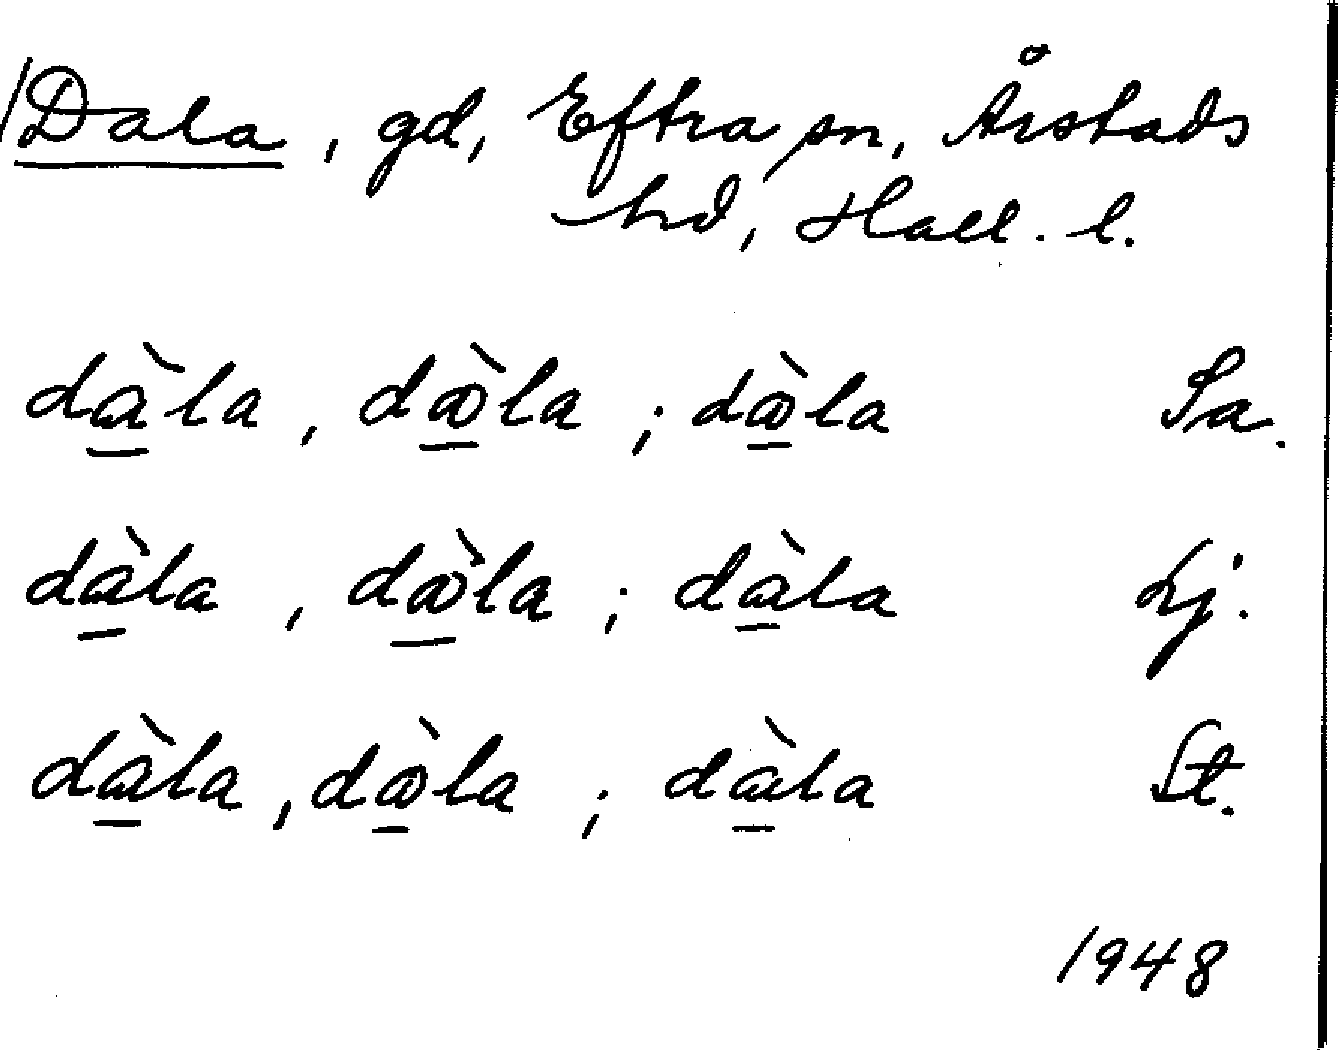 /Dala, gd, Eftra sn, Årstads
hd, Hall. l.
dɑ̱̀la, dà̱la; dà̱la Sa.
dɑ̱̀la, dà̱la; dɑ̱̀la Lj.
dɑ̱̀la, dà̱la; dɑ̱̀la St.
1948